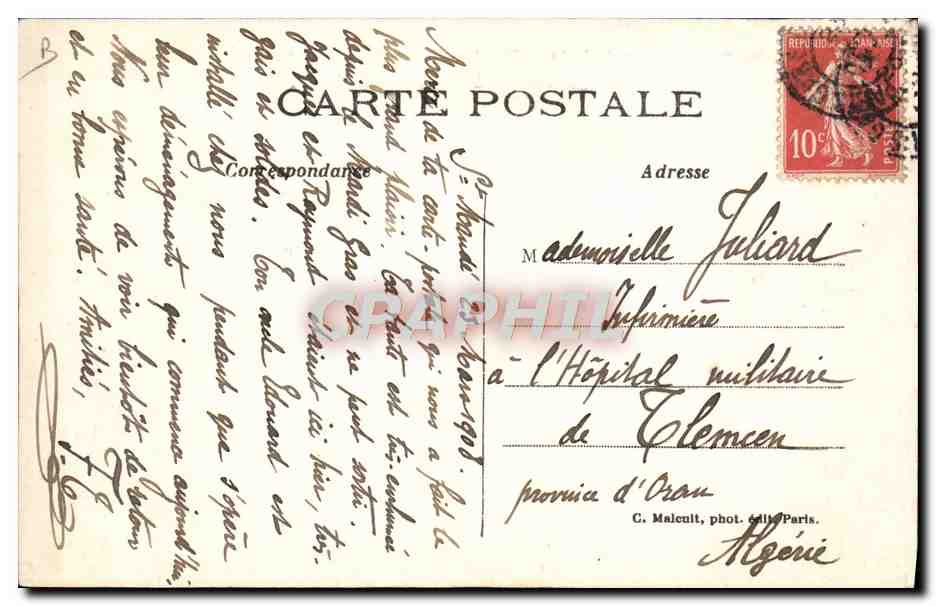 CARTE POSTALE
Correspondance
Adresse
REPUBLIQUE FRANÇAISE
10c
POSTES
Mademoiselle Juliard
Infirmière
à l'Hôpital militaire
de Tlemcen
province d'Oran
Algérie
C. Malcuit, phot. édit. Paris.
St Mandé 25 Mars 1908.
Merci de ta carte-postale qui nous a fait le
plus grand plaisir. est tout est très enrhumé
depuis le Mardi Gras et ne peut sortir.
Jacques et Raymond étaient ici hier, très
gais et solides. Ton oncle Edouard est
installé chez nous pendant que s'opère
leur déménagement qui commence aujourd'hui.
Nous espérons te voir bientôt de retour
et en bonne santé. Amitiés,
CPAPHIL
B